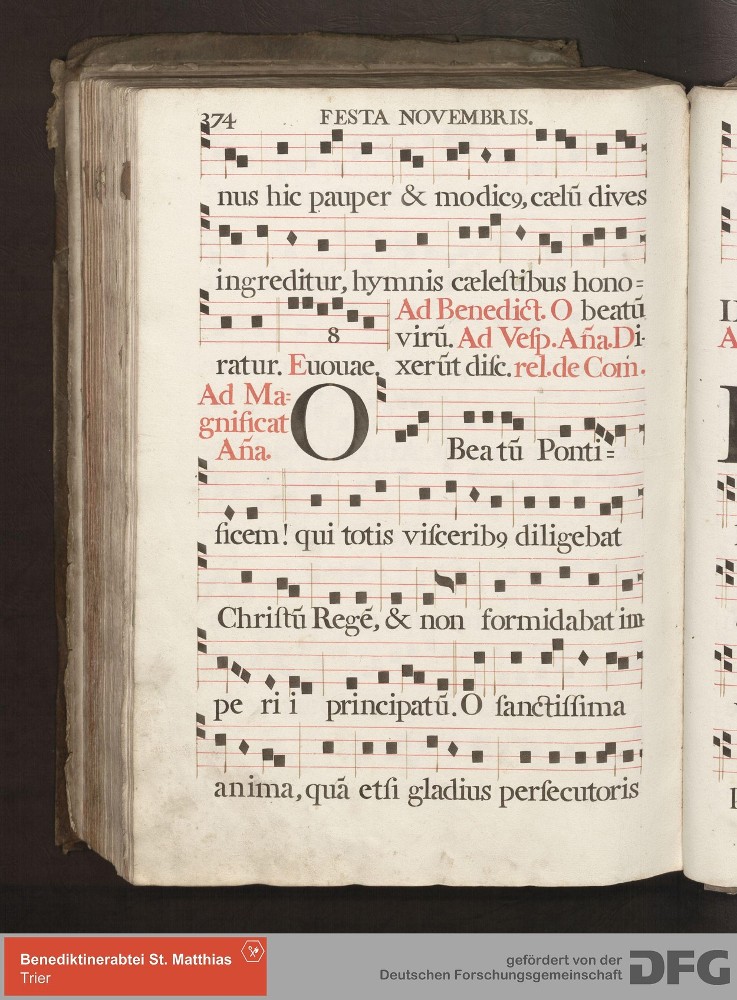 374 FESTA NOVEMBRIS.
nus hic pauper & modicꝯ, cælū dives
ingreditur, hymnis cæleſtibus hono=
Ad Benedict. O beatū
8 virū. Ad Veſp. Aña. Di-
ratur. Euouae. xerūt diſc. rel. de Com̄.
Ad Ma=
gnificat
Aña.
O Beatū Ponti=
ficem! qui totis viſceribꝯ diligebat
Chriſtū Regē, & non formidabat im
pe ri i principatū. O ſanctiſſima
anima, quā etſi gladius perſecutoris
Benediktinerabtei St. Matthias
Trier
gefördert von der
Deutschen Forschungsgemeinschaft
DFG